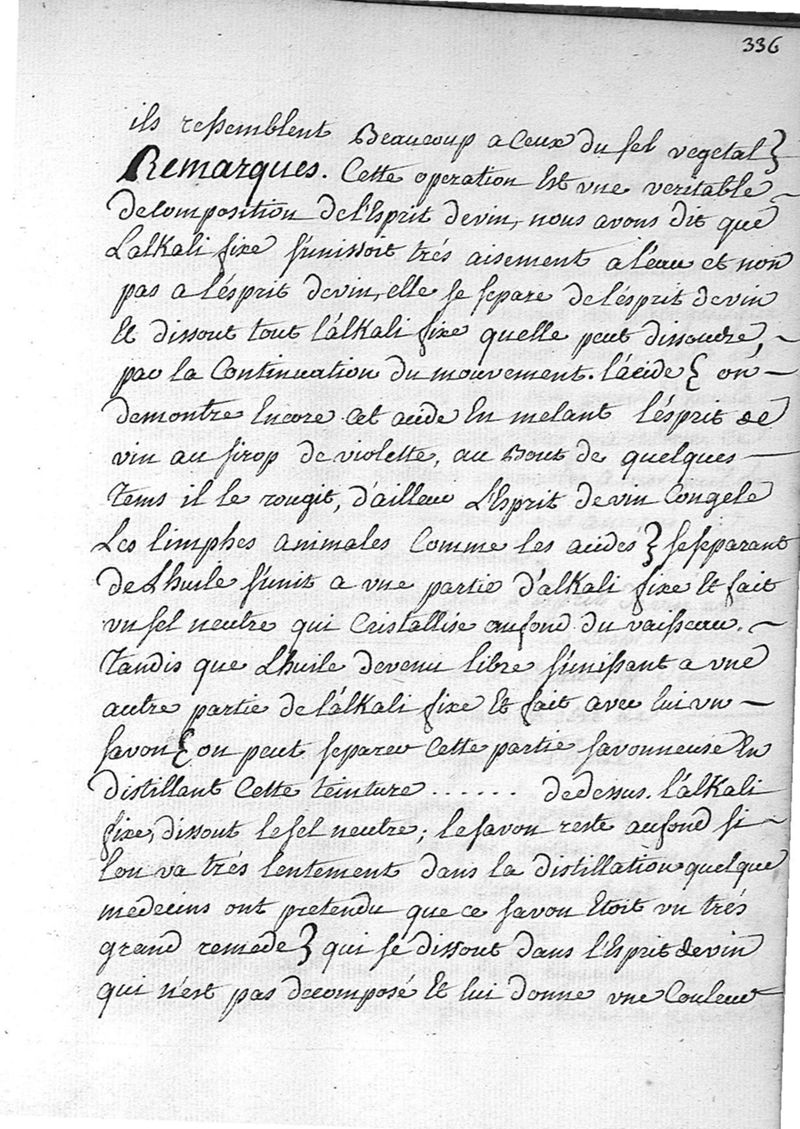 336
ils ressemblent Beaucoup a Ceux du sel vegetal }
Remarques. Cette operation Est vne veritable
decomposition de l'Esprit devin, nous avons dit que
L'alkali fixe s'unissoit trés aisement a l'eau et non
pas a l'ésprit devin, elle se separe de l'ésprit devin
Et dissout tout l'alkali fixe quelle peut dissoudre, ~
par la Continuation du mouvement. l'acide { on ~
demontre Encore cet acide En melant l'ésprit de
vin au sirop de violette, au Bout de quelques —
tems il le rougit, d'ailleur L'Esprit devin Congele
Les limphes animales Comme les acides } se separant
de L'huile s'unit a vne partie d'alkali fixe Et fait
vn sel neutre qui Cristallise au fond du vaisseau. ~
Tandis que L'huile devenu libre s'unissant a vne
autre partie de l'alkali fixe Et fait avec lui vn ~
savon { on peut separer Cette partie savonneuse En
distillant Cette teinture ...... de dessus. l'alkali
fixe, dissout le sel neutre; le savon reste au fond si ~
l'on va trés lentement dans la distillation quelque
medecins ont pretendu que ce savon Etoit vn trés
grand remede } qui se dissout dans l'Esprit devin
qui n'est pas decomposé Et lui donne vne Couleur